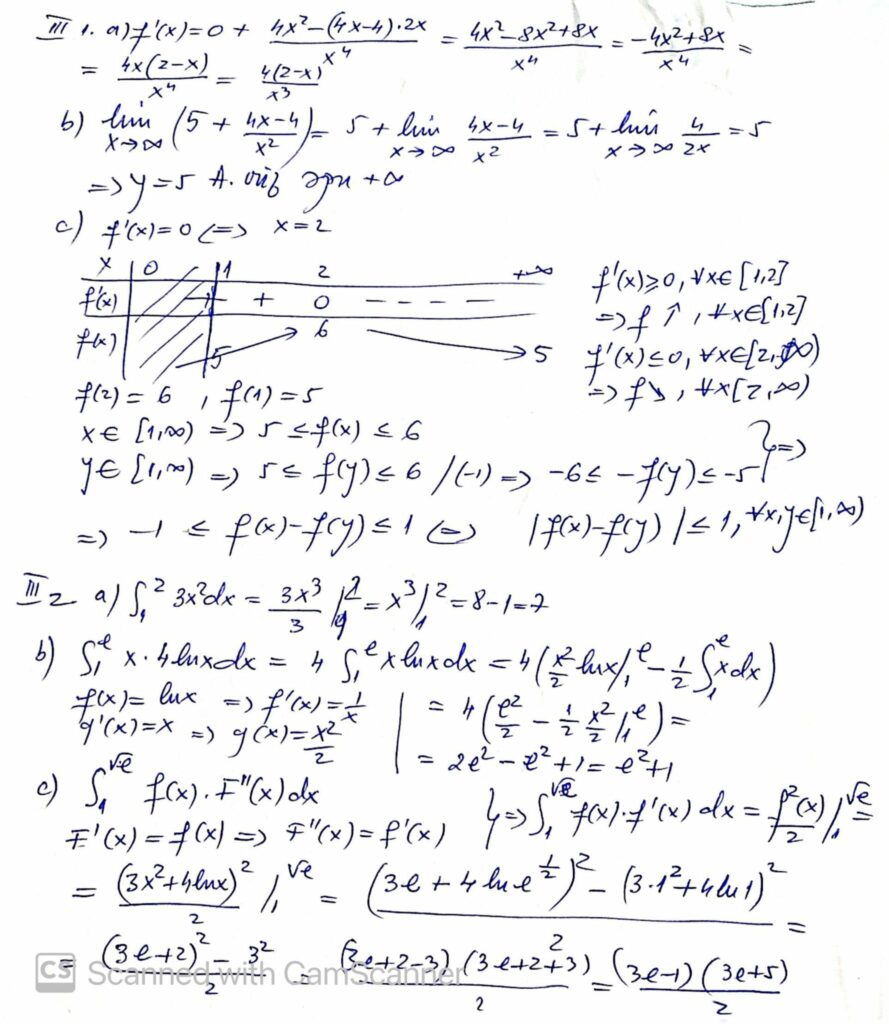 III 1. a) f'(x)=0 + (4x²-(4x-4)·2x)/x⁴ = (4x²-8x²+8x)/x⁴ = (-4x²+8x)/x⁴ =
= 4x(2-x)/x⁴ = 4(2-x)/x³
b) lim x→∞ (5 + (4x-4)/x²) = 5 + lim x→∞ (4x-4)/x² = 5 + lim x→∞ 4/2x = 5
=> y=5 A. oriz spre +∞
c) f'(x)=0 <=> x=2
x | 0 1 2 +∞
f'(x) + + 0 - - - -
f(x) 5 6 5
f'(x)≥0, ∀x∈[1,2]
=> f ↑, ∀x∈[1,2]
f'(x)≤0, ∀x∈[2,∞)
=> f ↘, ∀x[2,∞)
f(2)=6, f(1)=5
x∈[1,∞) => 5≤f(x)≤6
y∈[1,∞) => 5≤f(y)≤6 /(-1) => -6≤-f(y)≤-5 } =>
=> -1 ≤ f(x)-f(y) ≤ 1 <=> |f(x)-f(y)|≤1, ∀x,y∈[1,∞)
III 2 a) ∫₁² 3x²dx = 3x³/3 |₁² = x³|₁² = 8-1=7
b) ∫₁ᵉ x·4lnxdx = 4 ∫₁ᵉ xlnxdx = 4(x²/2 lnx|₁ᵉ - 1/2 ∫₁ᵉ xdx)
f(x)=lnx => f'(x)=1/x
g'(x)=x => g(x)=x²/2
= 4(e²/2 - 1/2 x²/2 |₁ᵉ) =
= 2e² - e² + 1 = e²+1
c) ∫₁^√e f(x)·F''(x)dx
F'(x)=f(x) => F''(x)=f'(x)
} => ∫₁^√e f(x)·f'(x)dx = f²(x)/2 |₁^√e =
= (3x²+4lnx)²/2 |₁^√e = ((3e+4lne^(1/2))² - (3·1²+4ln1)²)/2 =
= ((3e+2)² - 3²)/2 = (3e+2-3)(3e+2+3)/2 = (3e-1)(3e+5)/2
CS Scanned with CamScanner